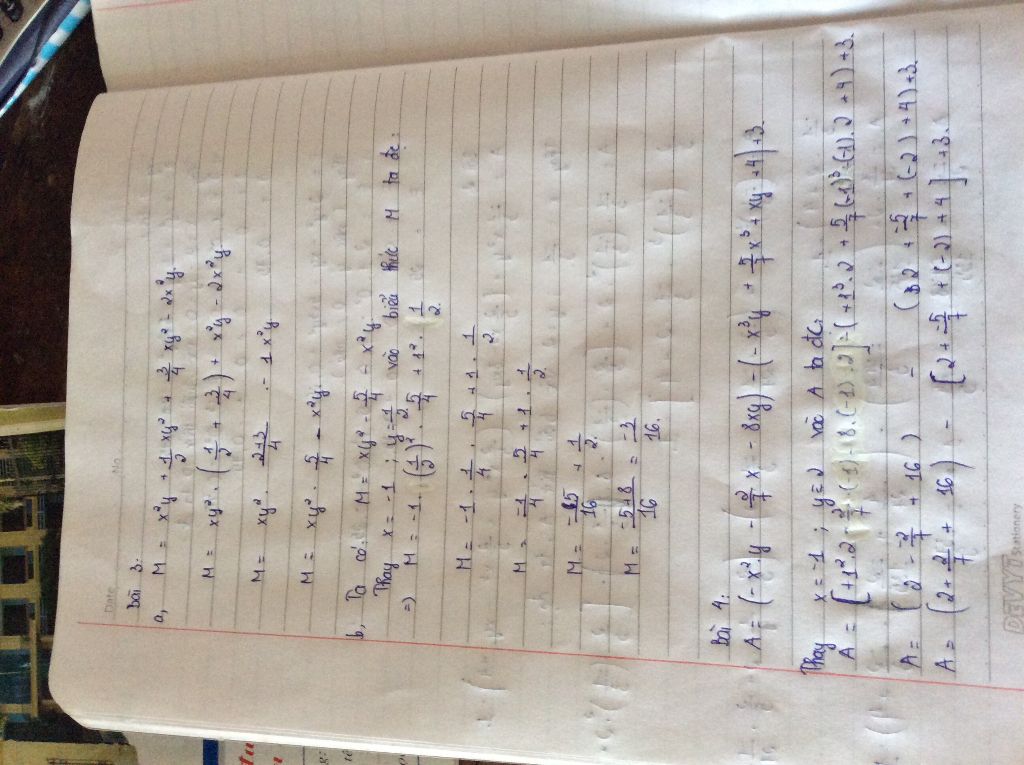 Date
No
Bài 3:
a, M = x²y + 1/2 xy² + 3/4 xy² - 2x²y.
M = xy² · (1/2 + 3/4) + x²y - 2x²y
M = xy² · 2+3/4 - 1x²y
M = xy² · 5/4 - x²y.
b, Ta có: M = xy² · 5/4 - x²y.
Thay x = -1 ; y = 1/2 vào biểu thức M ta đc:
=) M = -1 · (1/2)² · 5/4 + 1² · 1/2.
M = -1 · 1/4 · 5/4 + 1 · 1/2.
M = -1/4 · 5/4 + 1 · 1/2
M = -5/16 + 1/2.
M = -5+8/16 = -3/16.
Bài 4:
A = (-x²y - 2/7 x - 8xy) - (-x³y + 5/7 x³ + xy + 4) + 3
Thay x = -1 ; y = 2 vào A ta đc:
A = [+1².2 - 2/7 · (-1) - 8.(-1).2] - (+1³.2 + 5/7 (-1)³ - (-1).2 + 4) + 3.
A = (2 - -2/7 + 16) - (2 + -5/7 + (-2) + 4) + 3
A = (2 + 2/7 + 16) - [2 + -5/7 + (-2) + 4] + 3.
DEVYT Stationery